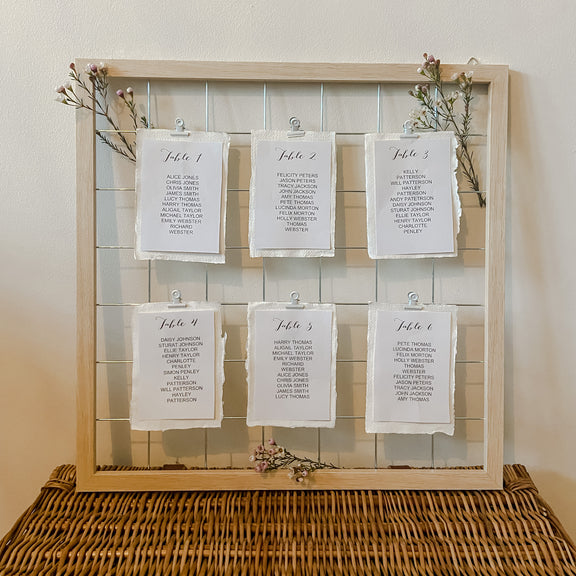 Table 1
ALICE JONES
CHRIS JONES
OLIVIA SMITH
JAMES SMITH
LUCY THOMAS
HARRY THOMAS
ALIGAIL TAYLOR
MICHAEL TAYLOR
EMILY WEBSTER
RICHARD
WEBSTER
Table 2
FELICITY PETERS
JASON PETERS
TRACY JACKSON
JOHN JACKSON
AMY THOMAS
PETE THOMAS
LUCINDA MORTON
FELIX MORTON
THOMAS
WEBSTER
Table 3
KELLY
PATTERSON
WILL PATTERSON
HAYLEY
PATTERSON
ANDY PATETRSON
DAISY JOHNSON
STURAT JOHNSON
ELLIE TAYLOR
HENRY TAYLOR
CHARLOTTE
PENLEY
Table 4
DAISY JOHNSON
STURAT JOHNSON
ELLIE TAYLOR
HENRY TAYLOR
CHARLOTTE
PENLEY
SIMON PENLEY
KELLY
PATTERSON
WILL PATTERSON
HAYLEY
PATTERSON
Table 5
HARRY THOMAS
ALIGAIL TAYLOR
MICHAEL TAYLOR
EMILY WEBSTER
RICHARD
WEBSTER
ALICE JONES
CHRIS JONES
OLIVIA SMITH
JAMES SMITH
LUCY THOMAS
Table 6
PETE THOMAS
LUCINDA MORTON
FELIX MORTON
HOLLY WEBSTER
THOMAS
WEBSTER
FELICITY PETERS
JASON PETERS
TRACY JACKSON
JOHN JACKSON
AMY THOMAS